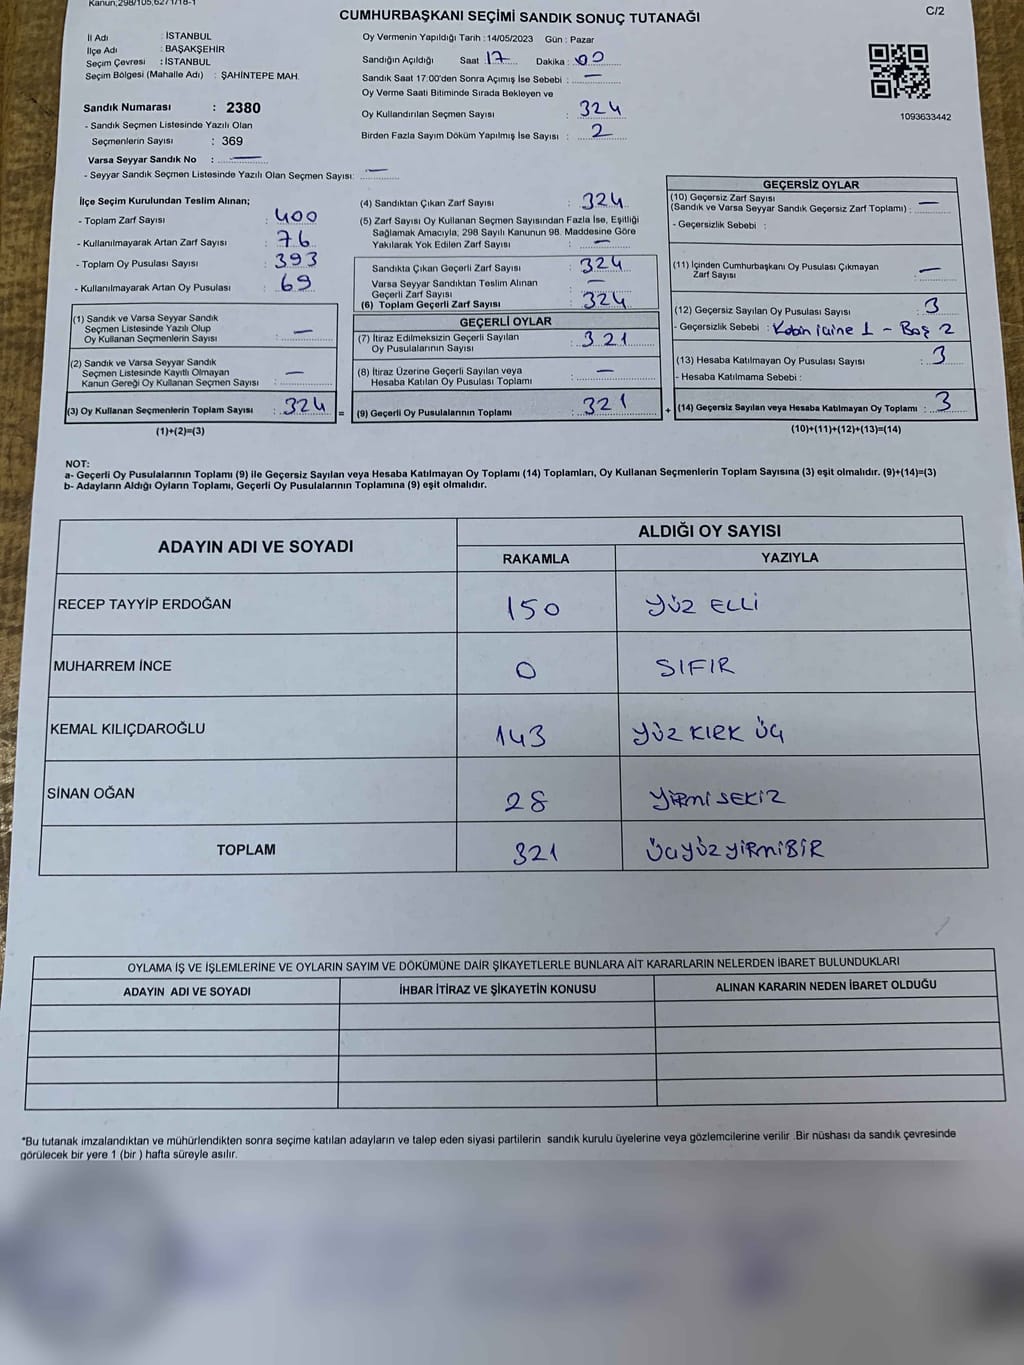 Kanun,298/105,627/1/18-1
C/2
CUMHURBAŞKANI SEÇİMİ SANDIK SONUÇ TUTANAĞI
İl Adı : İSTANBUL
İlçe Adı : BAŞAKŞEHİR
Seçim Çevresi : İSTANBUL
Seçim Bölgesi (Mahalle Adı) : ŞAHİNTEPE MAH.
Sandık Numarası : 2380
- Sandık Seçmen Listesinde Yazılı Olan
Seçmenlerin Sayısı : 369
Varsa Seyyar Sandık No : —
- Seyyar Sandık Seçmen Listesinde Yazılı Olan Seçmen Sayısı: —
Oy Vermenin Yapıldığı Tarih :14/05/2023 Gün : Pazar
Sandığın Açıldığı Saat 17 Dakika : 00
Sandık Saat 17:00'den Sonra Açımış İse Sebebi : —
Oy Verme Saati Bitiminde Sırada Bekleyen ve
Oy Kullandırılan Seçmen Sayısı : 324
Birden Fazla Sayım Döküm Yapılmış İse Sayısı : 2
1093633442
İlçe Seçim Kurulundan Teslim Alınan;
- Toplam Zarf Sayısı : 400
- Kullanılmayarak Artan Zarf Sayısı : 76
- Toplam Oy Pusulası Sayısı : 393
- Kullanılmayarak Artan Oy Pusulası : 69
(1) Sandık ve Varsa Seyyar Sandık
Seçmen Listesinde Yazılı Olup
Oy Kullanan Seçmenlerin Sayısı : —
(2) Sandık ve Varsa Seyyar Sandık
Seçmen Listesinde Kayıtlı Olmayan
Kanun Gereği Oy Kullanan Seçmen Sayısı : —
(3) Oy Kullanan Seçmenlerin Toplam Sayısı : 324 =
(1)+(2)=(3)
(4) Sandıktan Çıkan Zarf Sayısı : 324
(5) Zarf Sayısı Oy Kullanan Seçmen Sayısından Fazla İse, Eşitliği
Sağlamak Amacıyla, 298 Sayılı Kanunun 98. Maddesine Göre
Yakılarak Yok Edilen Zarf Sayısı : —
Sandıkta Çıkan Geçerli Zarf Sayısı : 324
Varsa Seyyar Sandıktan Zarftan Alınan
Geçerli Zarf Sayısı : —
(6) Toplam Geçerli Zarf Sayısı : 324
GEÇERLİ OYLAR
(7) İtiraz Edilmeksizin Geçerli Sayılan
Oy Pusulalarının Sayısı : 321
(8) İtiraz Üzerine Geçerli Sayılan veya
Hesaba Katılan Oy Pusulası Toplamı : —
(9) Geçerli Oy Pusulalarının Toplamı : 321 +
GEÇERSİZ OYLAR
(10) Geçersiz Zarf Sayısı
(Sandık ve Varsa Seyyar Sandık Geçersiz Zarf Toplamı) : —
- Geçersizlik Sebebi :
(11) İçinden Cumhurbaşkanı Oy Pusulası Çıkmayan
Zarf Sayısı : —
(12) Geçersiz Sayılan Oy Pusulası Sayısı : 3
- Geçersizlik Sebebi : Kabin içine 1 - Boş 2
(13) Hesaba Katılmayan Oy Pusulası Sayısı : 3
- Hesaba Katılmama Sebebi :
(14) Geçersiz Sayılan veya Hesaba Katılmayan Oy Toplamı : 3
(10)+(11)+(12)+(13)=(14)
NOT:
a- Geçerli Oy Pusulalarının Toplamı (9) ile Geçersiz Sayılan veya Hesaba Katılmayan Oy Toplamı (14) Toplamları, Oy Kullanan Seçmenlerin Toplam Sayısına (3) eşit olmalıdır. (9)+(14)=(3)
b- Adayların Aldığı Oyların Toplamı, Geçerli Oy Pusulalarının Toplamına (9) eşit olmalıdır.
ADAYIN ADI VE SOYADI
ALDIĞI OY SAYISI
RAKAMLA YAZIYLA
RECEP TAYYİP ERDOĞAN 150 YÜZ ELLİ
MUHARREM İNCE 0 SIFIR
KEMAL KILIÇDAROĞLU 143 YÜZ KIRK ÜÇ
SİNAN OĞAN 28 YİRMİ SEKİZ
TOPLAM 321 ÜÇYÜZ YİRMİBİR
OYLAMA İŞ VE İŞLEMLERİNE VE OYLARIN SAYIM VE DÖKÜMÜNE DAİR ŞİKAYETLERLE BUNLARA AİT KARARLARIN NELERDEN İBARET BULUNDUKLARI
ADAYIN ADI VE SOYADI İHBAR İTİRAZ VE ŞİKAYETİN KONUSU ALINAN KARARIN NEDEN İBARET OLDUĞU
*Bu tutanak imzalandıktan ve mühürlendikten sonra seçime katılan adayların ve talep eden siyasi partilerin sandık kurulu üyelerine veya gözlemcilerine verilir .Bir nüshası da sandık çevresinde
görülecek bir yere 1 (bir ) hafta süreyle asılır.